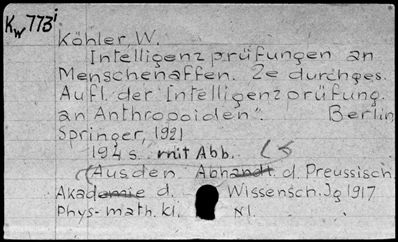 Kw 773i
Köhler, W.
Intelligenzprüfungen an
Menschenaffen. 2e durchges.
Aufl. der "Intelligenzprüfung.
an Anthropoiden". Berlin
Springer, 1921
194 s. mit Abb.
(Aus den Abhandl. d. Preussisch.
Akademie d. Wissensch. Jg 1917
Phys-math. Kl. N1.